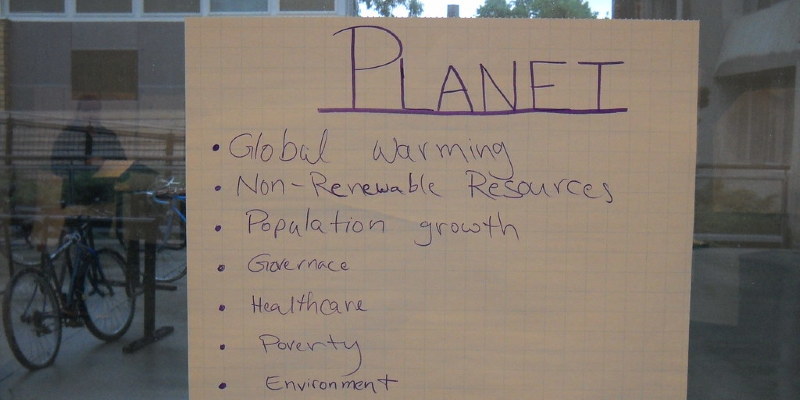 PLANET
• Global warming
• Non-Renewable Resources
• Population growth
• Governace
• Healthcare
• Poverty
• Environment